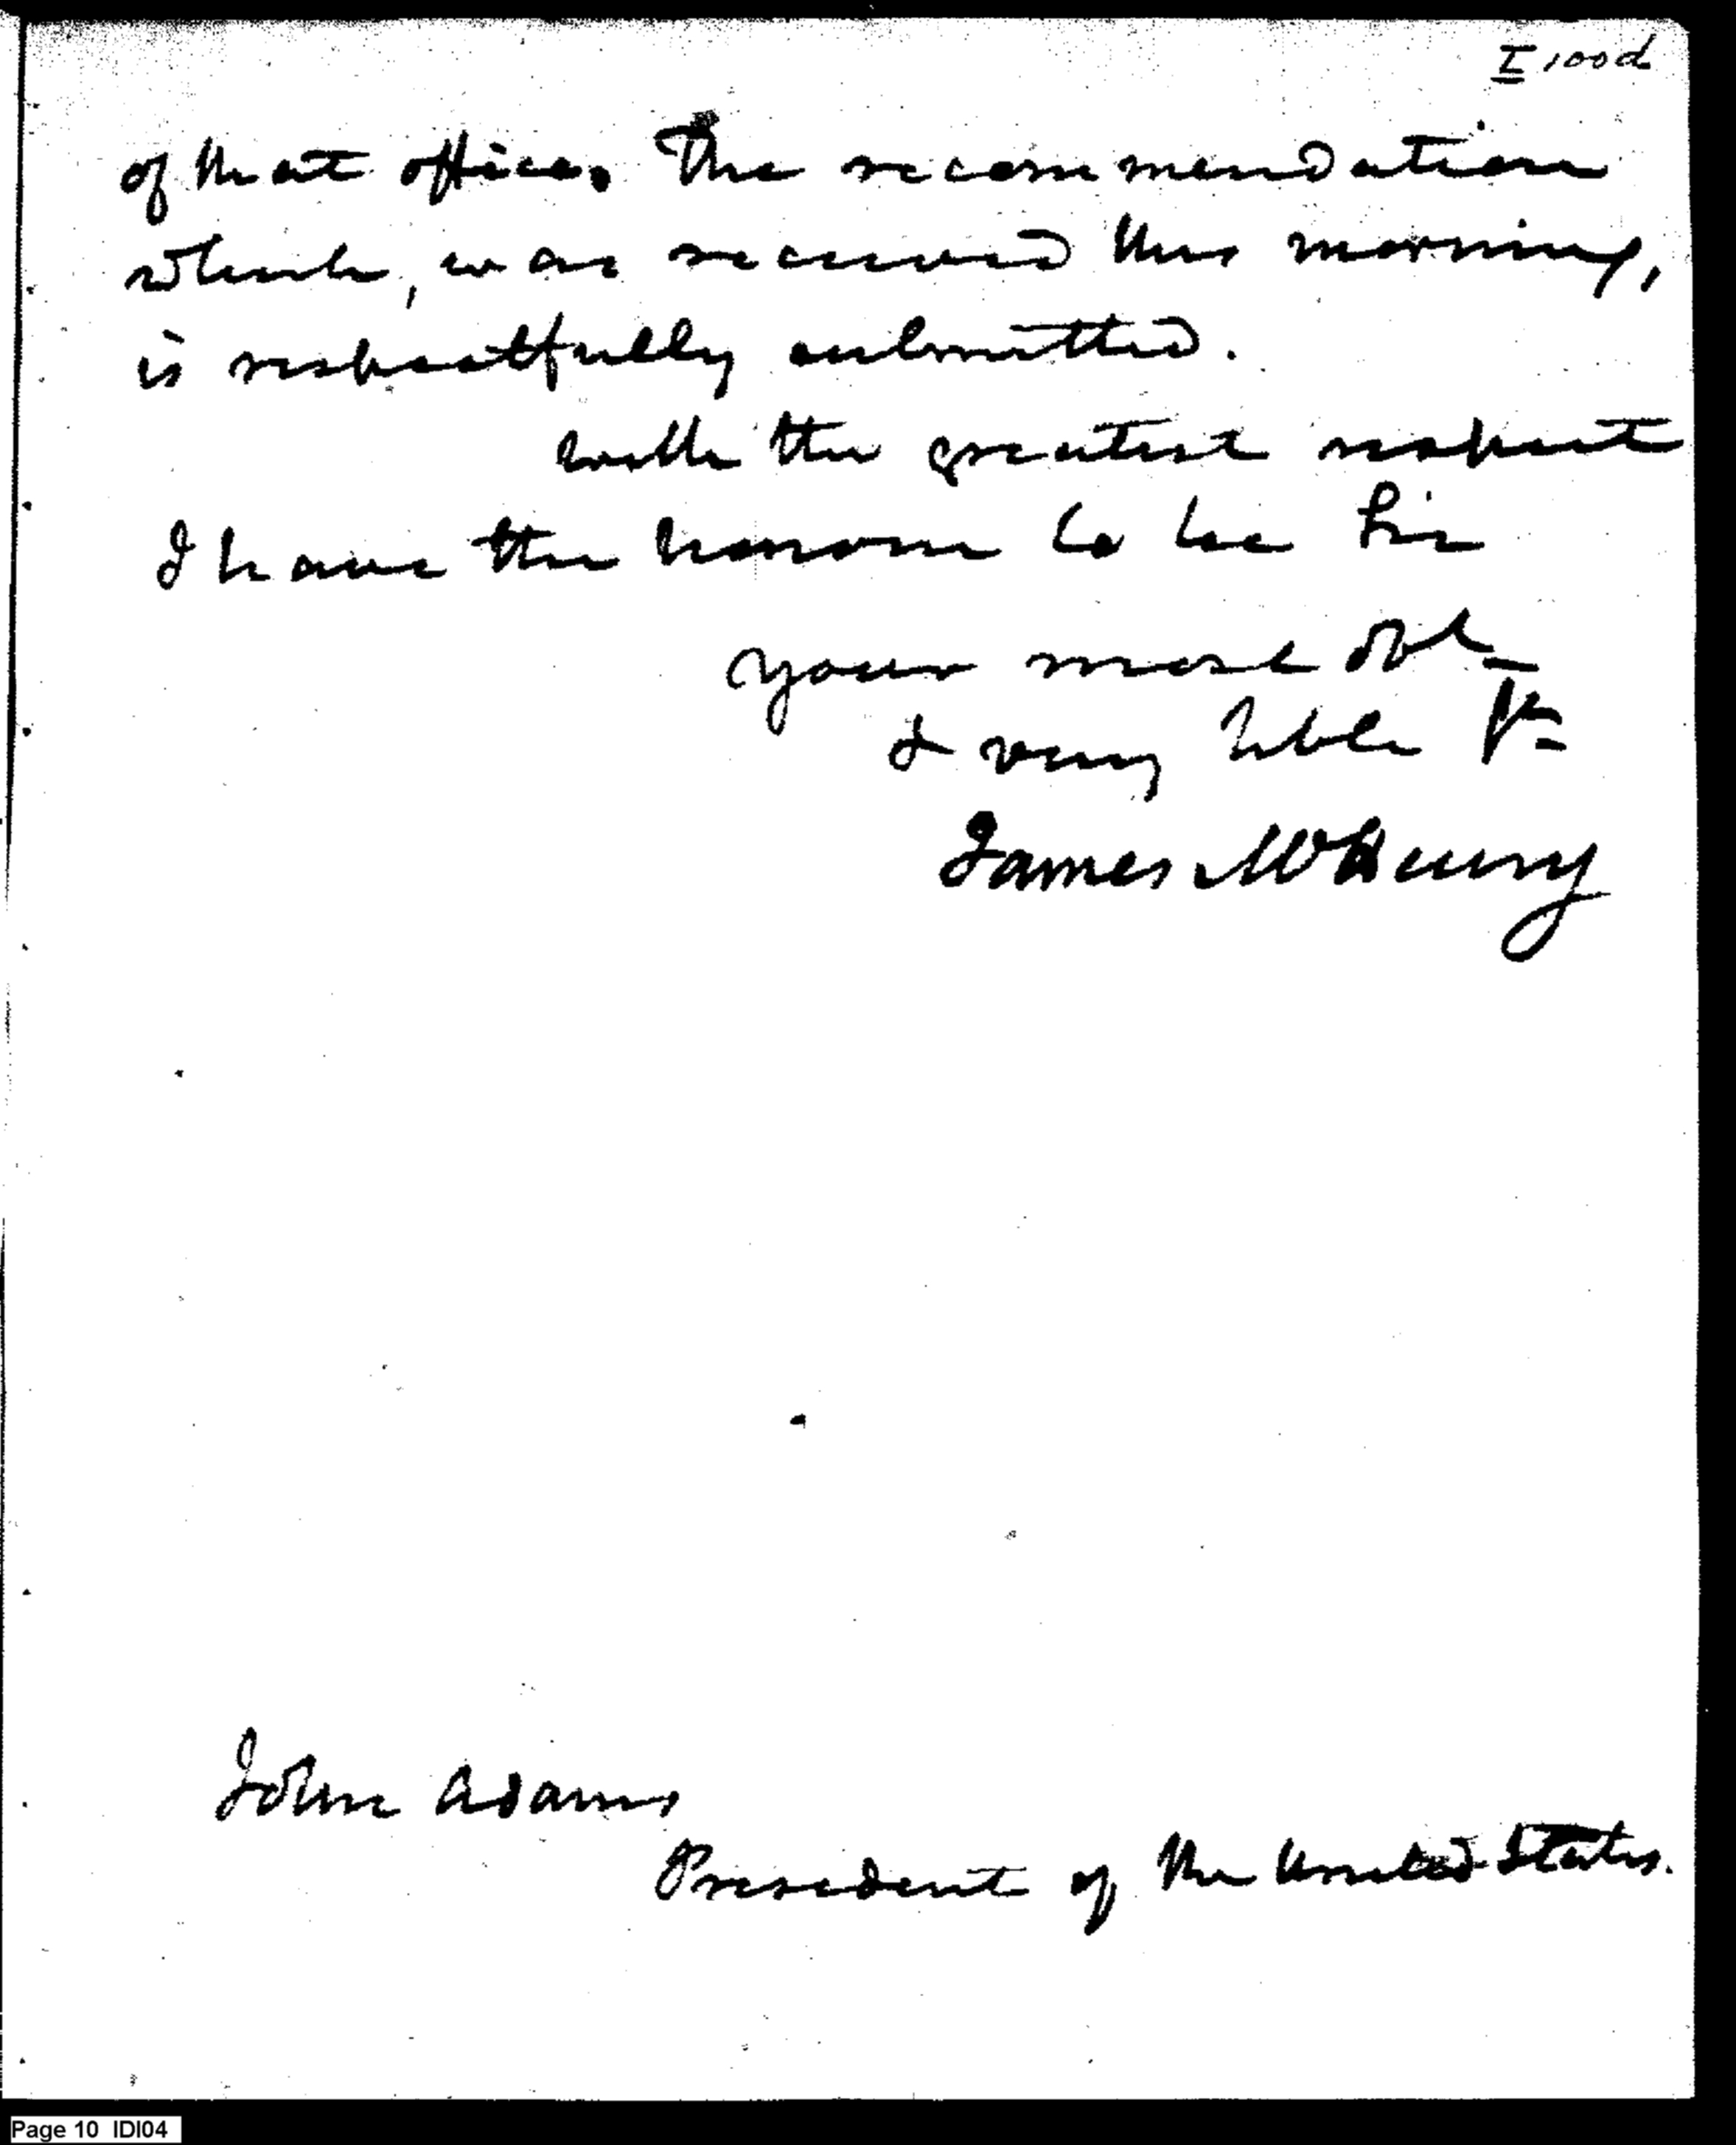 I 100d
of that office. The recommendation
which, was received this morning,
is respectfully submitted.
with the greatest respect
I have the honour to be Sir
your most obt
& very hble st
James McHenry
John Adams
President of the United States.
Page 10 IDI04